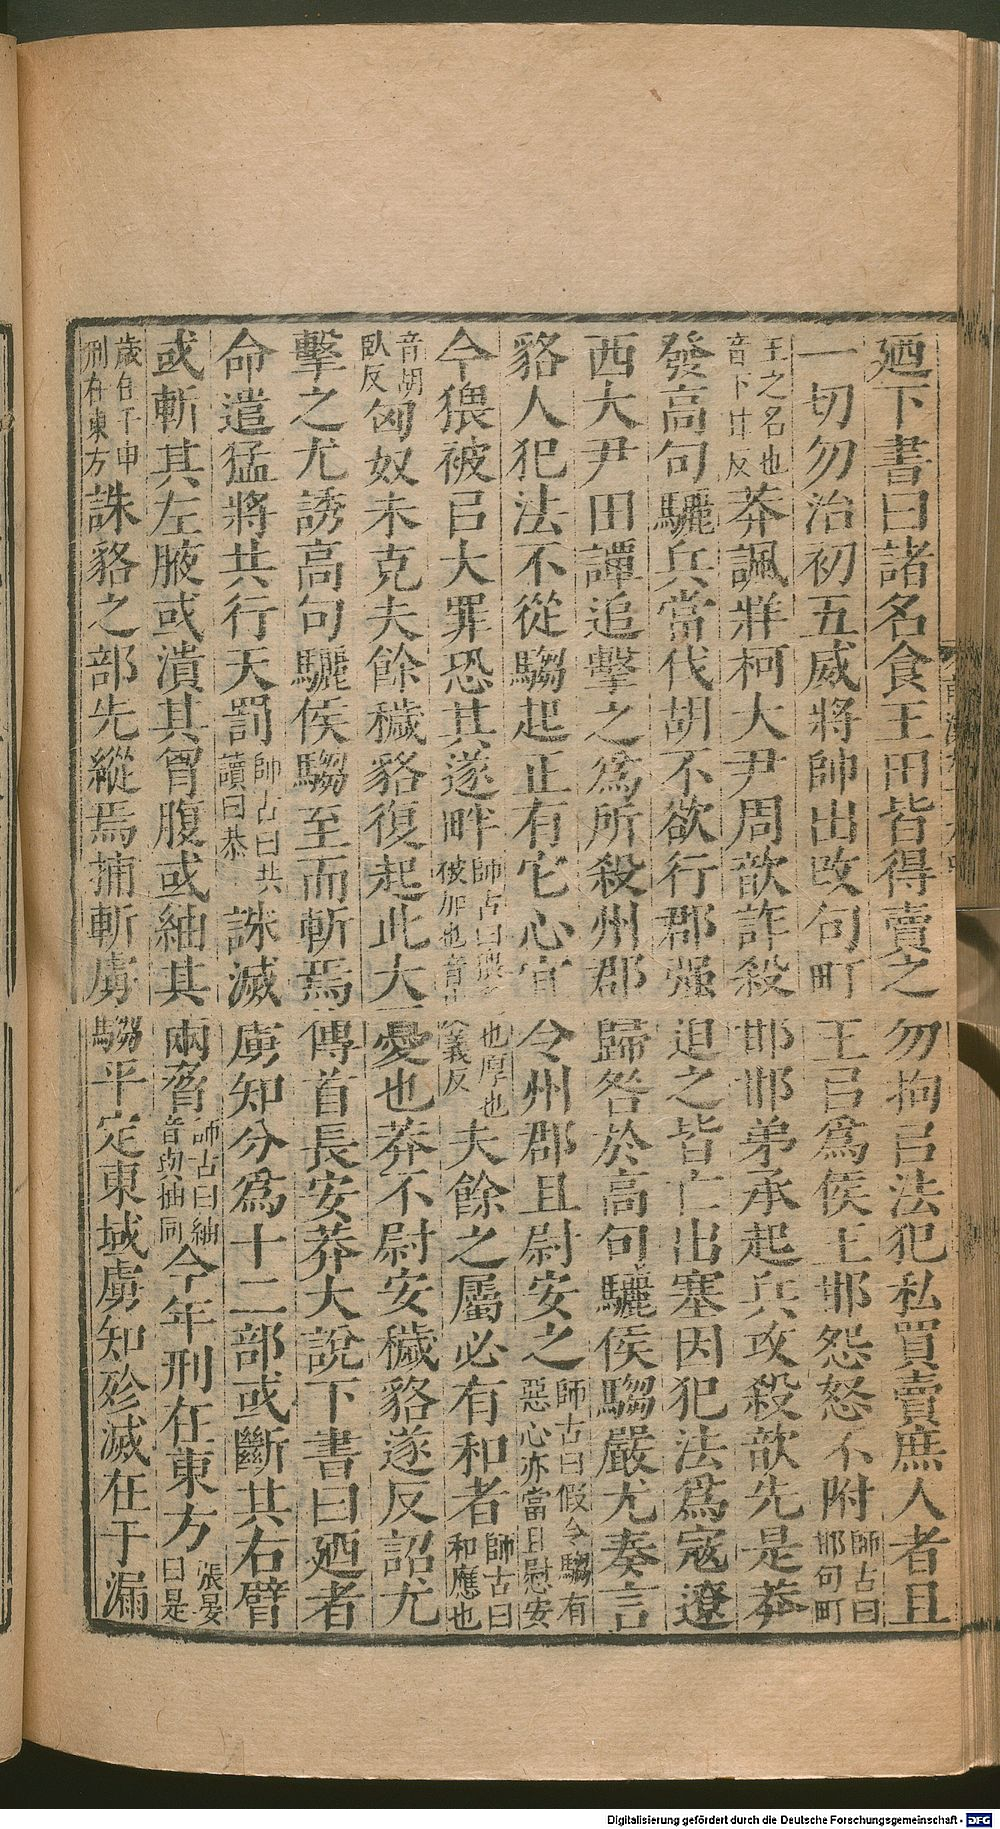 廼下書曰諸名食王田皆得賣之勿拘㠯法犯私買賣庶人者且
一切勿治初五威將帥出改句町王㠯爲侯王邯怨怒不附師古曰邯句町
王之名也音下甘反莽諷牂柯大尹周歆詐殺邯邯弟承起兵攻殺歆先是莽
發高句驪兵當代胡不欲行郡强迫之皆亡出塞因犯法爲寇遼
西大尹田譚追擊之爲所殺州郡歸咎於高句驪侯騶嚴尤奏言
貉人犯法不從騶起正有它心宜令州郡且尉安之師古曰假令騶有惡心亦當且慰安
今猥被㠯大罪恐其遂畔師古曰猥也厚也被加也音義反夫餘之屬必有和者師古曰和應也
音胡臥反匈奴未克夫餘穢貉復起此大憂也莽不尉安穢貉遂反詔尤
擊之尤誘高句驪侯騶至而斬焉傳首長安莽大說下書曰廼者
命遣猛將共行天罰師古曰共讀曰恭誅滅虜知分爲十二部或斷其右臂
或斬其左腋或潰其胷腹或紬其兩脅師古曰紬音與抽同今年刑在東方張晏曰是
歲在壬申刑在東方誅貉之部先縱焉捕斬虜騶平定東域虜知殄滅在于漏
Digitalisierung gefördert durch die Deutsche Forschungsgemeinschaft - DFG